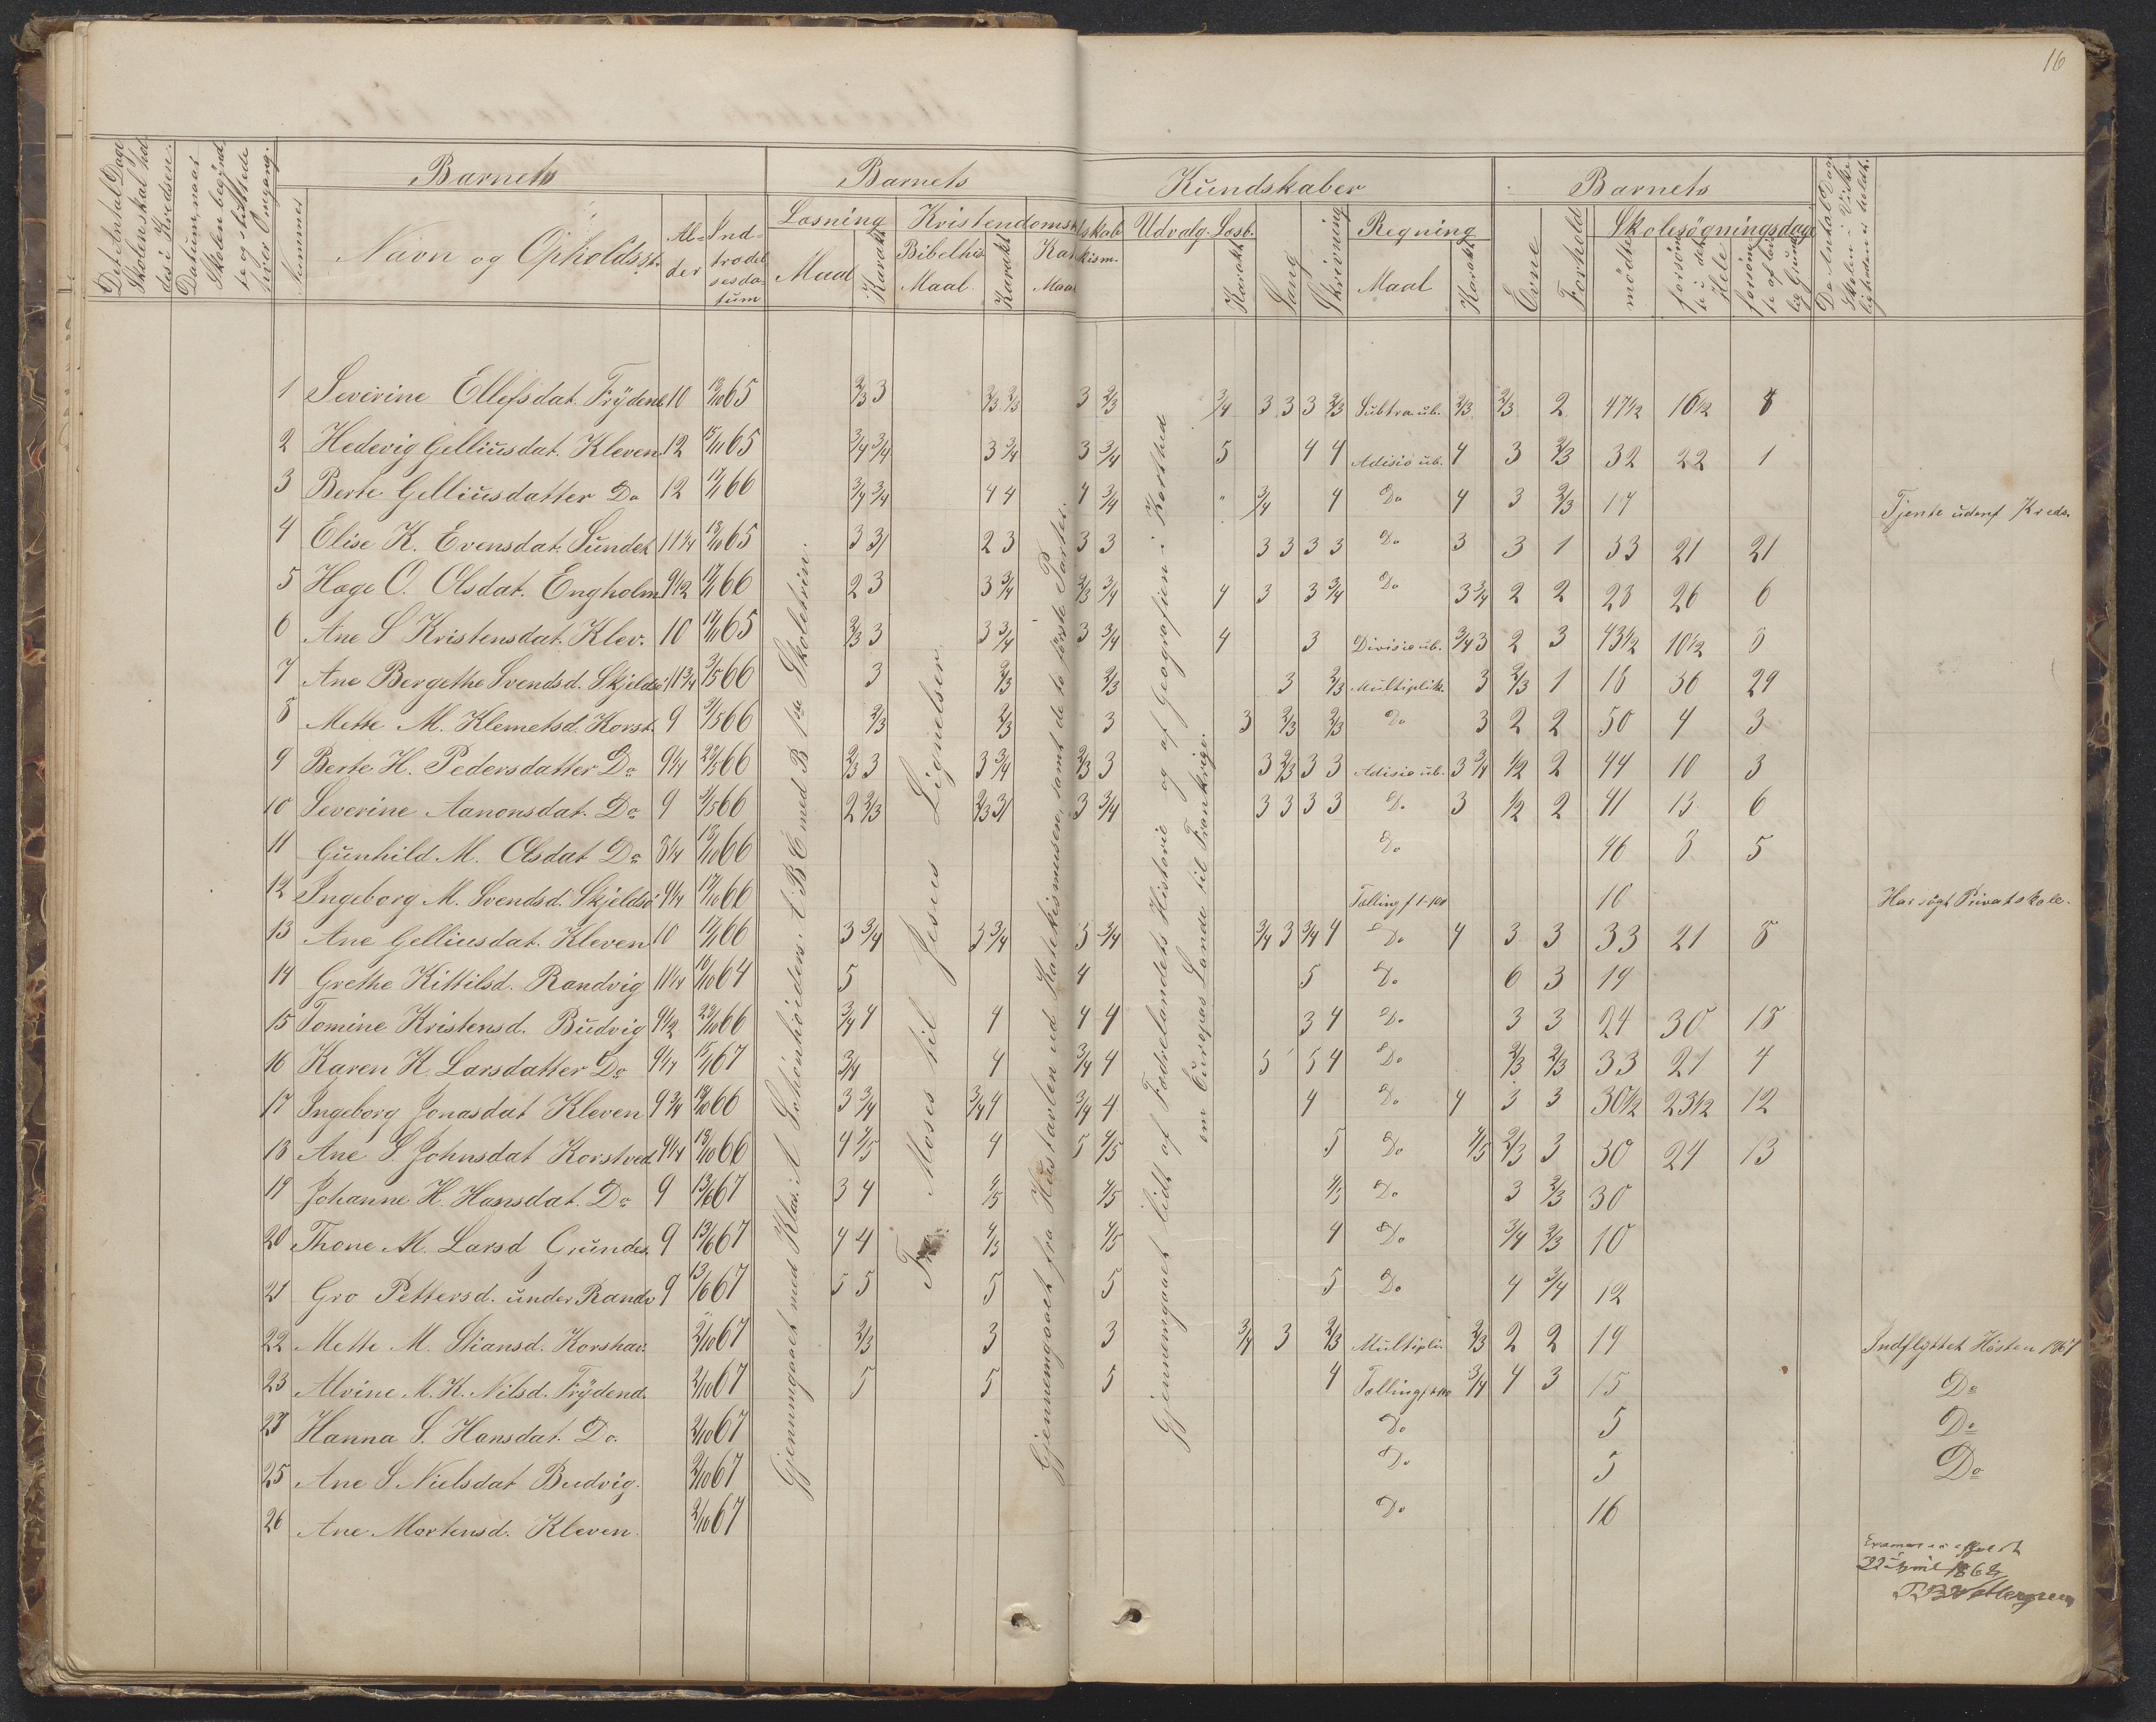 16
Det Antal Dage Skolen skal holdes i Kredsen.
Datum, naar Skolen begyndte og sluttede hver Omgang.
Nummer
Barnets
Navn og Opholdsst.
Alder
Indtrædelsesdatum
Barnets Kundskaber
Læsning
Maal
Karakt.
Kristendomskundskab
Bibelhis.
Maal
Karakt.
Maal
Udvalg. Læsb.
Karakt.
Sang
Skrivning
Regning
Maal
Karakt.
Barnets
Evne
Forhold
Skolesøgningsdage
mødte
forsømte i det Hele
forsømte af lovlig Grund
1 Severine Ellefsdat. Frydend. 10 65 2/3 3 2/3 2/3 3 2/3 3/4 3 3 3 2/3 Subtra üb. 2/3 2/3 2 47 1/2 16 1/2 8
2 Hedevig Gelliusdat. Kleven 12 15/11 65 3/4 3/4 3 3/4 3 3/4 5 4 4 Adisio üb. 4 3 2/3 32 22 1
3 Berte Gelliusdatter Do 12 66 3/4 3/4 4 4 4 3/4 " 3/4 4 Do 4 3 2/3 17 Tjente udenf Kreds.
4 Elise K. Evensdat. Sundet 11 1/4 65 3 3 2 3 3 3 3 3 3 3 Do 3 3 1 33 21 21
5 Hage O. Olsdat. Engholm 9 1/2 66 2 3 3 3/4 2/3 3/4 4 3 3 3/4 Do 3 3/4 2 2 28 26 6
6 Ane S Kristensdat. Klev. 10 65 2/3 3 3 3/4 3 3/4 4 3 Divisio üb. 3/4 3 2 3 43 1/2 10 1/2 8
7 Ane Bergethe Svendsd. Skjeldsø 11 3/4 66 3 2/3 2/3 3 2/3 Multiplik. 3 2/3 1 18 36 29
8 Mette M. Klemetsd. Korst. 9 66 2/3 2/3 3 3 2/3 2/3 Do 3 2 2 50 4 3
9 Berte H. Pedersdatter Do 9 1/4 66 2/3 3 3 3/4 2/3 3 3 2/3 3 3 Adisio üb. 3 3/4 1/2 2 44 10 3
10 Severine Aanonsdat. Do 9 66 2 2/3 2/3 3 3 3/4 3 3 3 3 Do 3 1/2 2 41 13 6
11 Gunhild M. Olsdat Do 8 1/4 66 Do 46 8 5
12 Ingeborg M. Svendsd. Skjeldsø 9 1/4 66 Tælling f 1-100 10 Har søgt Privatskole.
13 Ane Gelliusdat. Kleven 10 66 3 3/4 3 3/4 3 3/4 3/4 3 3/4 4 Do 4 3 3 33 21 8
14 Grethe Kittilsd. Randvig 11 1/4 64 5 4 5 Do 6 3 19
15 Tomine Kristensd. Budvig 9 1/2 66 3/4 4 4 4 4 3 4 Do 3 3 24 30 18
16 Karen K. Larsdatter Do 9 1/4 67 3/4 4 3/4 4 5 5 4 Do 2/3 2/3 33 21 4
17 Ingeborg Jonasdat Kleven 9 3/4 66 3 3/4 3/4 4 3/4 4 4 Do 4 3 3 30 1/2 23 1/2 12
18 Ane S. Johnsdat Korstved 9 1/4 66 4 4/5 4 5 4/5 5 Do 4/5 2/3 3 30 24 13
19 Johanne H. Hansdat. Do 9 13/6 67 3 4 4/5 4/5 4/5 Do 3 2/3 30
20 Thone M. Larsd Grundes. 9 13/6 67 4 4 4/5 4/5 4 Do 3/4 2/3 10
21 Gro Pettersd. under Randv 9 13/6 67 5 5 5 5 5 Do 4 3/4 12
22 Mette M. Stiansd. Korshav. 2/10 67 2/3 3 3 3/4 3 2/3 Multiplic. 2/3 2 2 19 Indflyttet Høsten 1867
23 Alvine M. K. Nilsd. Frydend. 2/10 67 5 5 5 4 Tælling 3/4 4 3 15 Do
24 Hanna S. Hansdat. Do. 2/10 67 Do 5 Do
25 Ane S. Nielsdat Budvig. 2/10 67 Do 5 Do
26 Ane Mortensd. Kleven. 2/10 67 Do 16
Gjennemgaaet med Klas. A Schönhöiders A B C med B 1ste Skoletrin.
Fra Moses til Jesus Lignelser
Gjennemgaaet fra Hustavlen ud Katekismusen, samt de to første Parter.
Gjennemgaaet lidt af Fædrelandets Historie og af Geografien i Kortstud
om Europas Lande til Frankrige.
22 April 1868